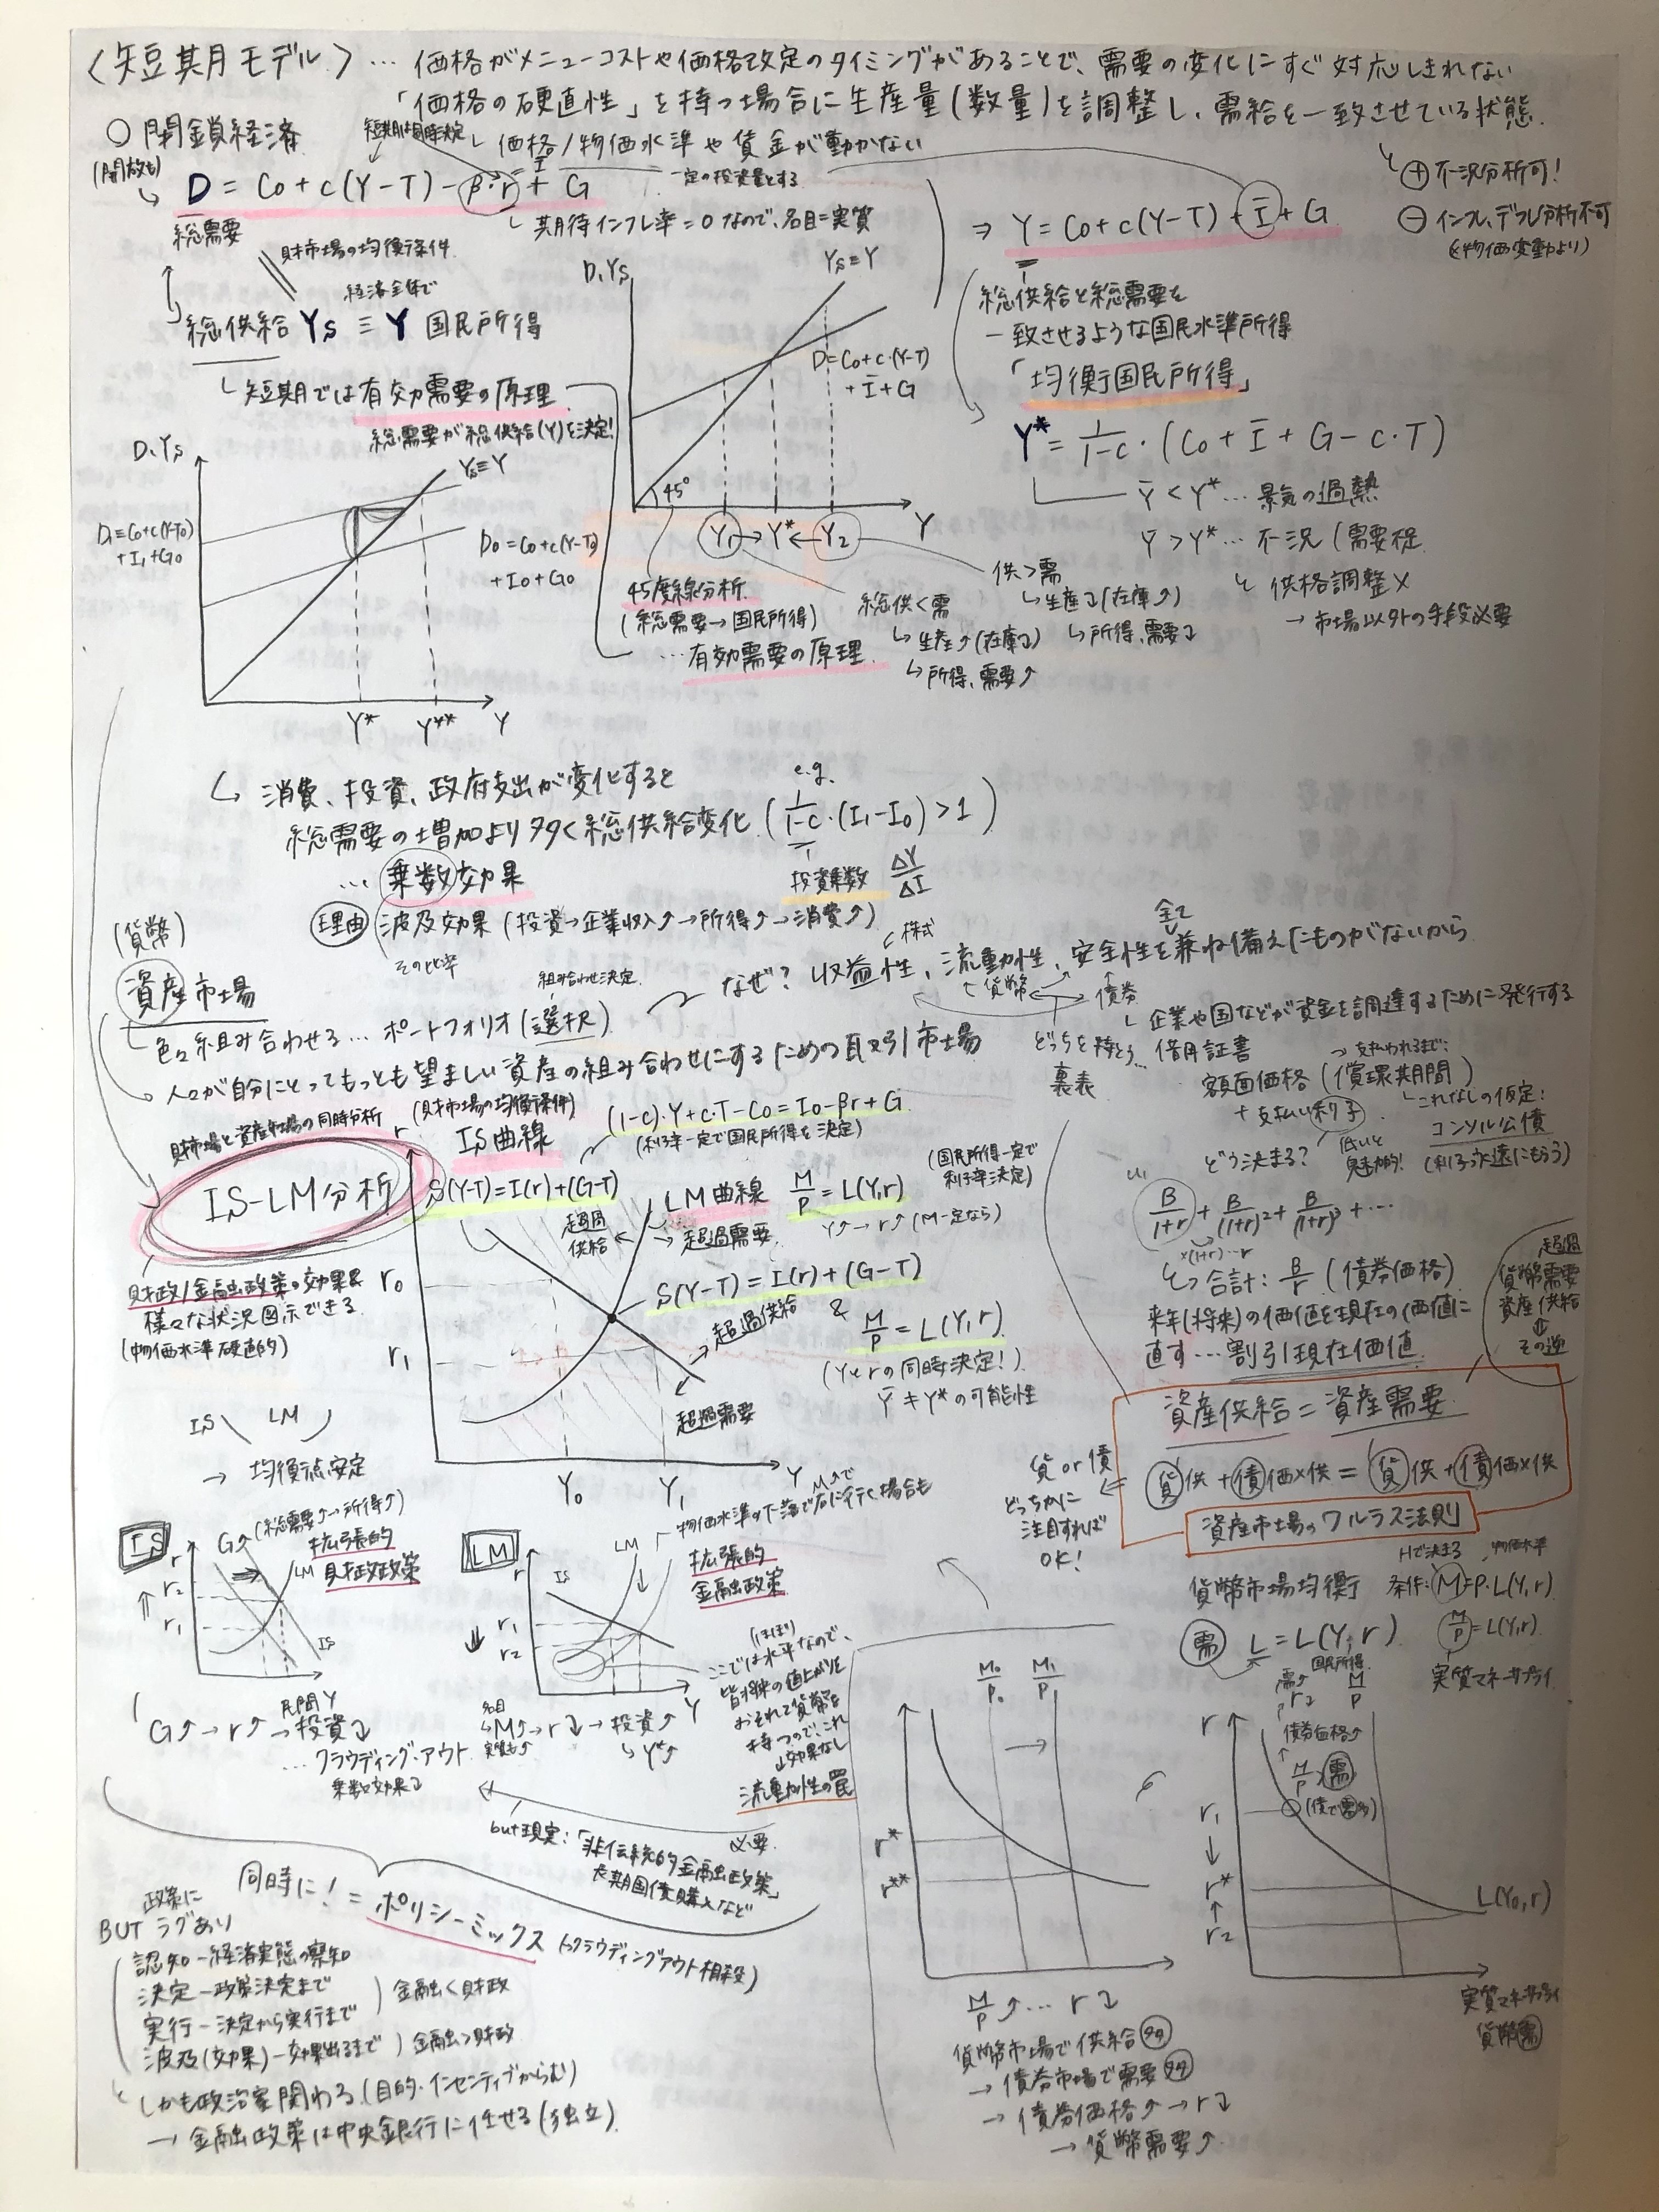 〈短期モデル〉… 価格がメニューコストや価格改定のタイミングがあることで、需要の変化にすぐ対応しきれない
「価格の硬直性」を持つ場合に生産量(数量)を調整し、需給を一致させている状態.
価格/物価水準や賃金が動かない
⊕ 不況分析可!
⊖ インフレ、デフレ分析不可
(∵物価変動より)
○ 閉鎖経済
(開放も)
D = C₀ + c(Y-T) - β・r + G
一定の投資量とする
期待インフレ率=0なので、名目=実質
総需要
財市場の均衡条件
経済全体で
総供給 Ys ≡ Y 国民所得
短期では有効需要の原理
総需要が総供給(Y)を決定!
D、Ys
Ys≡Y
D₁=C₀+c(Y-T₀)
+I₁+G₀
D₀=C₀+c(Y-T₀)
+I₀+G₀
Y* Y** Y
D、Ys
Ys≡Y
D=C₀+c・(Y-T)
+Ī+G
45°
Y₁ → Y* ← Y₂ Y
45度線分析
(総需要→国民所得)
…有効需要の原理
総供<需
↳生産↑(在庫↓)
↳所得、需要↑
供>需
↳生産↓(在庫↑)
↳所得、需要↓
⇒ Y = C₀+c(Y-T)+Ī+G
総供給と総需要を
一致させるような国民水準所得
「均衡国民所得」
Y* = 1/1-c ・(C₀+Ī+G-c・T)
Ȳ < Y* … 景気の過熱
Ȳ > Y* … 不況(需要不足
供格調整×
→ 市場以外の手段必要
↳ 消費、投資、政府支出が変化すると
総需要の増加より多く総供給変化
e.g.
(1/1-c・(I₁-I₀)>1)
投資乗数 ΔY/ΔI
… 乗数効果
理由 波及効果(投資→企業収入↑→所得↑→消費↑)
その比率
(貨幣)
資産市場
組み合わせ決定
色々組み合わせる… ポートフォリオ(選択)
なぜ? 収益性、流動性、安全性を全て兼ね備えたものがないから
株式
貨幣 ↔ 債券
どっちを持とう…
裏表
企業や国などが資金を調達するために発行する
借用証書
→支払われるまで:
額面価格(償還期間)
+支払い利子
これなしの仮定:
コンソル公債
(利子永遠にもらう)
どう決まる? 低いと魅力的!
B/1+r + B/(1+r)² + B/(1+r)³ + …
×(1+r)…r
↳ 合計: B/r (債券価格)
来年(将来)の価値を現在の価値に
直す… 割引現在価値
人々が自分にとってもっとも望ましい資産の組み合わせにするための取引市場
財市場と資産市場の同時分析
IS-LM分析
財政/金融政策の効果や
様々な状況図示できる
(物価水準硬直的)
(財市場の均衡条件)
IS曲線
(1-c)・Y+c・T-C₀=I₀-βr+G
(利子率一定で国民所得を決定)
S(Y-T)=I(r)+(G-T)
LM曲線 M/P=L(Y,r)
(国民所得一定で
利子率決定)
Y↑→r↑(M一定なら)
超過供給
超過需要
S(Y-T)=I(r)+(G-T)
&
M/P=L(Y,r)
(Yとrの同時決定!)
Ȳ≠Y*の可能性
超過供給
超過需要
r
r₀
r₁
Y₀ Y₁ Y
IS LM
→ 均衡点安定
超過
貨幣需要
資産供給
⇕
その逆
資産供給=資産需要
貨供+債価×供=貨供+債価×供
資産市場のワルラス法則
貨or債
どっちかに
注目すれば
OK!
Hで決まる 物価水準
貨幣市場均衡 条件: M=P・L(Y,r)
需 L=L(Y,r) M/P=L(Y,r)
国民所得
実質マネーサプライ
IS
r
r₂
r₁
G↑(総需要↑→所得↑)
拡張的
財政政策
LM
IS
Y
G↑→r↑→民間投資↓
…クラウディング・アウト
乗数効果↓
LM
M↑で
物価水準の下落で右に行く場合も
拡張的
金融政策
r
r₁
r₂
IS
LM
Y
名目
M↑→r↓→投資↑
実質も↑
↳Y*↑
(ほぼ)
ここでは水平なので、
皆将来の値上がりを
おそれて貨幣を
持つので、これ
以上効果なし
流動性の罠
but現実:「非伝統的金融政策」必要
長期国債購入など
同時に!=ポリシーミックス(→クラウディングアウト相殺)
政策に
BUT ラグあり
認知-経済実態の察知
決定-政策決定まで
実行-決定から実行まで
金融<財政
波及(効果)-効果出るまで
金融>財政
しかも政治家関わる(目的・インセンティブからむ)
→ 金融政策は中央銀行に任せる(独立)
M₀/P₀ M₁/P₁
r*
r**
M/P↑… r↓
貨幣市場で供給多
→ 債券市場で需要多
→ 債券価格↑→r↓
→ 貨幣需要↑
M/P
r
債券価格↑
M/P>需
(債で需多)
r₁
↓
r*
↑
r₂
L(Y₀,r)
実質マネーサプライ
貨幣需